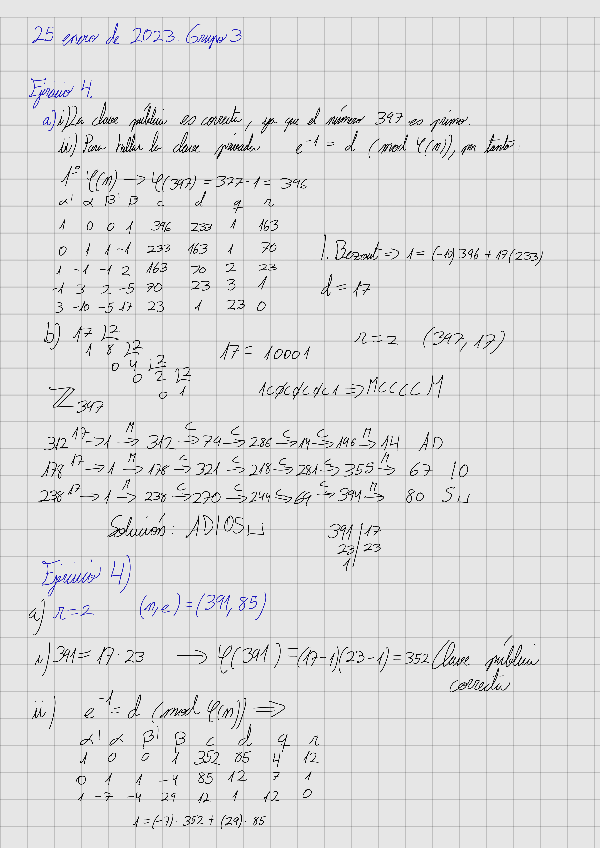 25 enero de 2023. Grupo 3
Ejercicio 4.
a) i) La clave pública es correcta, ya que el número 397 es primo.
ii) Para hallar la clave privada e⁻¹ = d (mod φ(n)), por tanto:
1º φ(n) → φ(397) = 397-1 = 396
α' α β' β c d q r
1 0 0 1 396 233 1 163
0 1 1 -1 233 163 1 70
1 -1 -1 2 163 70 2 23
-1 3 2 -5 70 23 3 1
3 -10 -5 17 23 1 23 0
I. Bezout => 1 = (-10) 396 + 17 (233)
d = 17
b) 17 |2
1 8 |2
0 4 |2
0 2 |2
0 1
17 = 10001
r = 2 (397, 17)
1c0c0c0c1 => MCCCCM
ℤ397
312¹⁷ → 1 M→ 312 C→ 79 C→ 286 C→ 14 C→ 196 M→ 14 AD
178¹⁷ → 1 M→ 178 C→ 321 C→ 218 C→ 281 C→ 355 M→ 67 IO
238¹⁷ → 1 M→ 238 C→ 270 C→ 249 C→ 69 C→ 394 M→ 80 S⊔
Solución: ADIOS⊔
391 | 17
23 | 23
1
Ejercicio 4)
a) r = 2 (n,e) = (391, 85)
i) 391 = 17 · 23 → φ(391) = (17-1)(23-1) = 352 Clave pública
correcta
ii) e⁻¹ = d (mod φ(n)) =>
α' α β' β c d q r
1 0 0 1 352 85 4 12
0 1 1 -4 85 12 7 1
1 -7 -4 29 12 1 12 0
1 = (-7) · 352 + (29) · 85